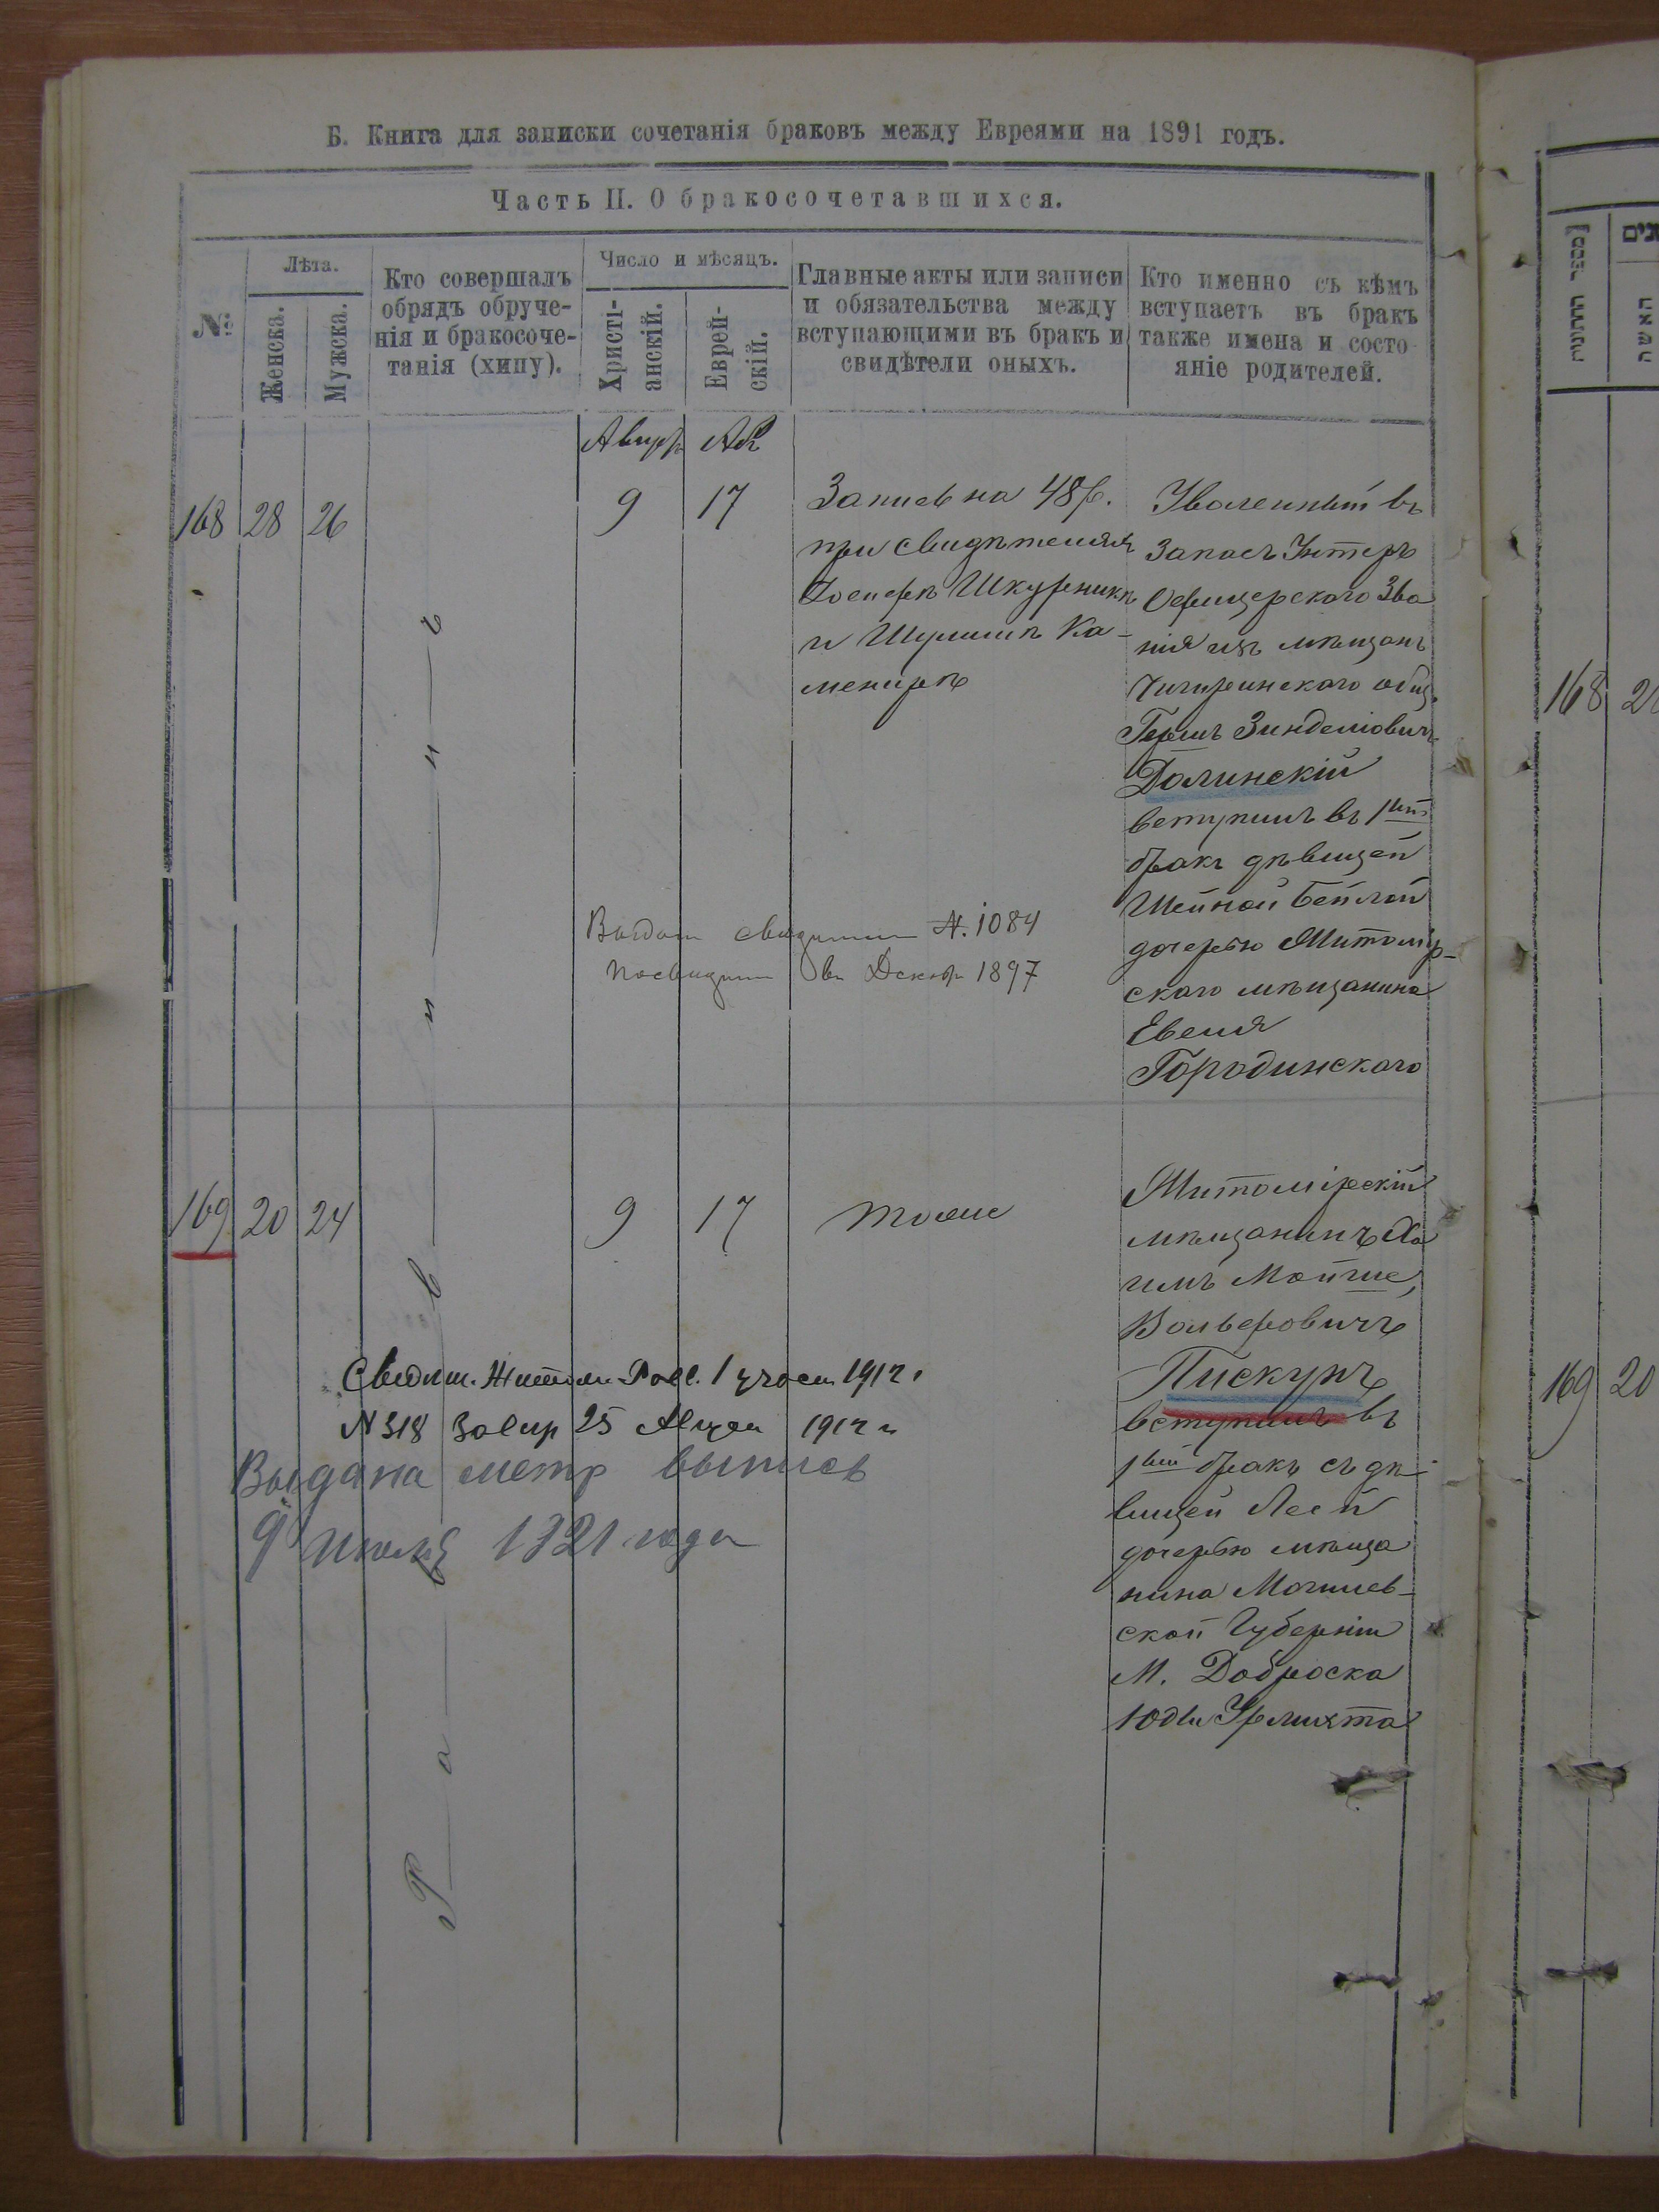 Б. Книга для записки сочетанія браковъ между Евреями на 1891 годъ.
Часть II. О бракосочетавшихся.
№
Лѣта.
Женска.
Мужска.
Кто совершалъ
обрядъ обруче-
нія и бракосоче-
танія (хипу).
Число и мѣсяцъ.
Христі-
анскій.
Еврей-
скій.
Главные акты или записи
и обязательства между
вступающими въ бракъ и
свидѣтели оныхъ.
Кто именно съ кѣмъ
вступаетъ въ бракъ
также имена и состо-
яніе родителей.
168 28 26
9 17
Запись на 48 р.
при свидѣтеляхъ
Шкурникъ
и Шулимъ Ка-
менирѣ
Уволенный въ
запасъ Унтеръ
Офицерскаго Зва
нія изъ мѣщанъ
Чигиринскаго общ.
Гершъ Зинделіовичъ
Долинскій
вступилъ въ 1ый
бракъ дѣвицей
Шейной Бейлой
дочерью Житомір-
скаго мѣщанина
Евеля
Городинскаго
N. 1084
въ Декабр 1897
Раввинъ
169 20 24
9 17
тоже
Житомірскій
мѣщанинъ Ха
имъ Мойше
Вольфовичъ
Пискунъ
вступилъ въ
1ый бракъ съ дѣ-
вицей Леей
дочерью мѣща
нина Могилев-
ской Губерніи
М. Доброска
Юды Урлихта
1 участ 1912 г
N 318 25 1912 г
Выдана метр выпись
9 июля 1921 года
168
169 20